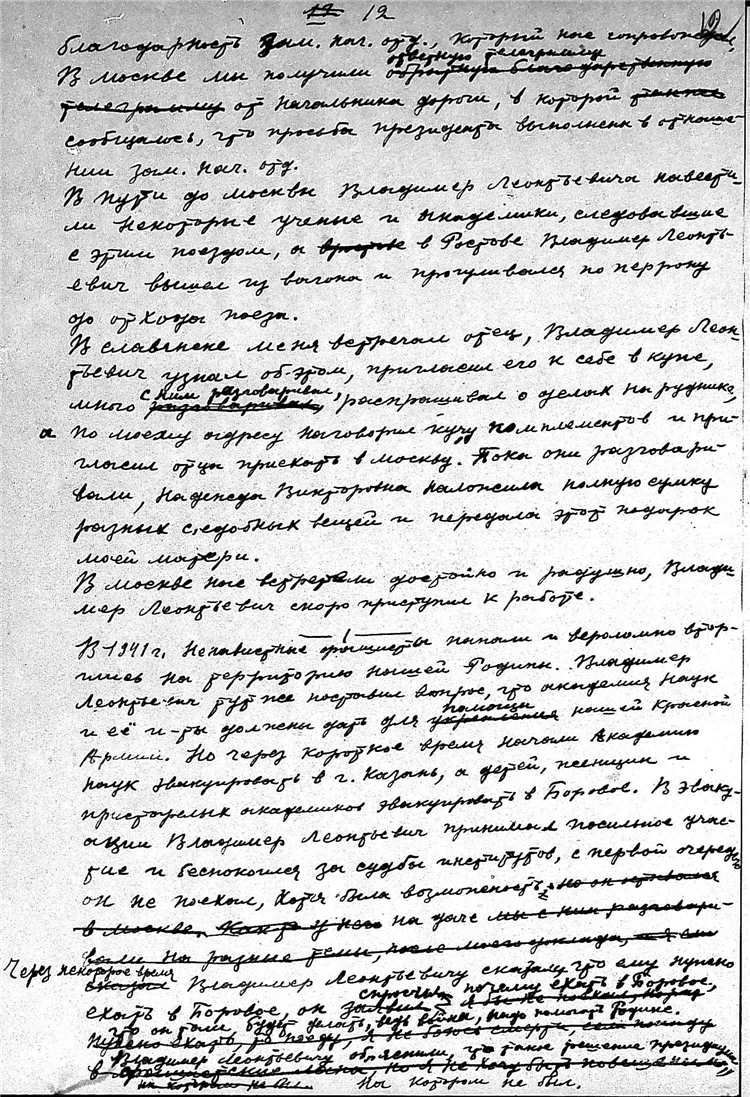 12 12
благодарность зам. нач. отд., который нас сопровождал.
ответную телеграмму
В Москве мы получили обратную благодарственную
телеграмму от начальника дороги, в которой также
сообщалось, что просьба президента выполнена в отноше-
нии зам. нач. отд.
В пути до Москвы Владимер Леонтьевича навести-
ли некоторые ученые и академики, следовавшие
с этим поездом, а в Ростове Владимер Леонть-
евич вышел из вагона и прогуливался по перрону
до отхода поеза.
В Славянске меня встречал отец, Владимер Леон-
тьевич узнал об этом, пригласил его к себе в купе,
с ним разговаривал,
много разговаривал, распрашивал о делах на руднике,
а по моему адресу наговорил кучу комплементов и при-
гласил отца приехать в Москву. Пока они разговари-
вали, Надежда Викторовна наложила полную сумку
разных с,едобных вещей и передала этот подарок
моей матери.
В Москве нас встретели достойно и радушно, Влади-
мер Леонтьевич скоро приступил к работе.
В 1941 г. ненавистные фашисты напали и вероломно втор-
глись на территорию нашей Родины. Владимер
Леонтьевич тут же поставил вопрос, что академия наук
помощи
и её и-ты должны дать для укрепления нашей Красной
Армии. Но через короткое время начали Академию
наук эвакуировать в г. Казань, а детей, женщин и
пристарелых академиков эвакуировать в Боровое. В эваку-
ации Владимер Леонтьевич принимал посильное учас-
тие и беспокоился за судьбы институтов, с первой очередью
он не поехал, хотя была возможность, но он оставался
в Москве. на даче мы с ним разговари-
вали на разные темы, после моего доклада,
Через некоторое время
Владимер Леонтьевичу сказали что ему нужно
спросил, почему ехать в Боровое,
ехать в Боровое, он заявил я бы не поехал,
что он там, будет делать, ведь война, надо помогать Родине.
нужно ехать, то поеду, я не боюсь смерти, если
Владимер Леонтьевичу об,яснили, что такое решение президиума
в фашистские но я не хочу быть повешенным
на котором не был. На котором не был.